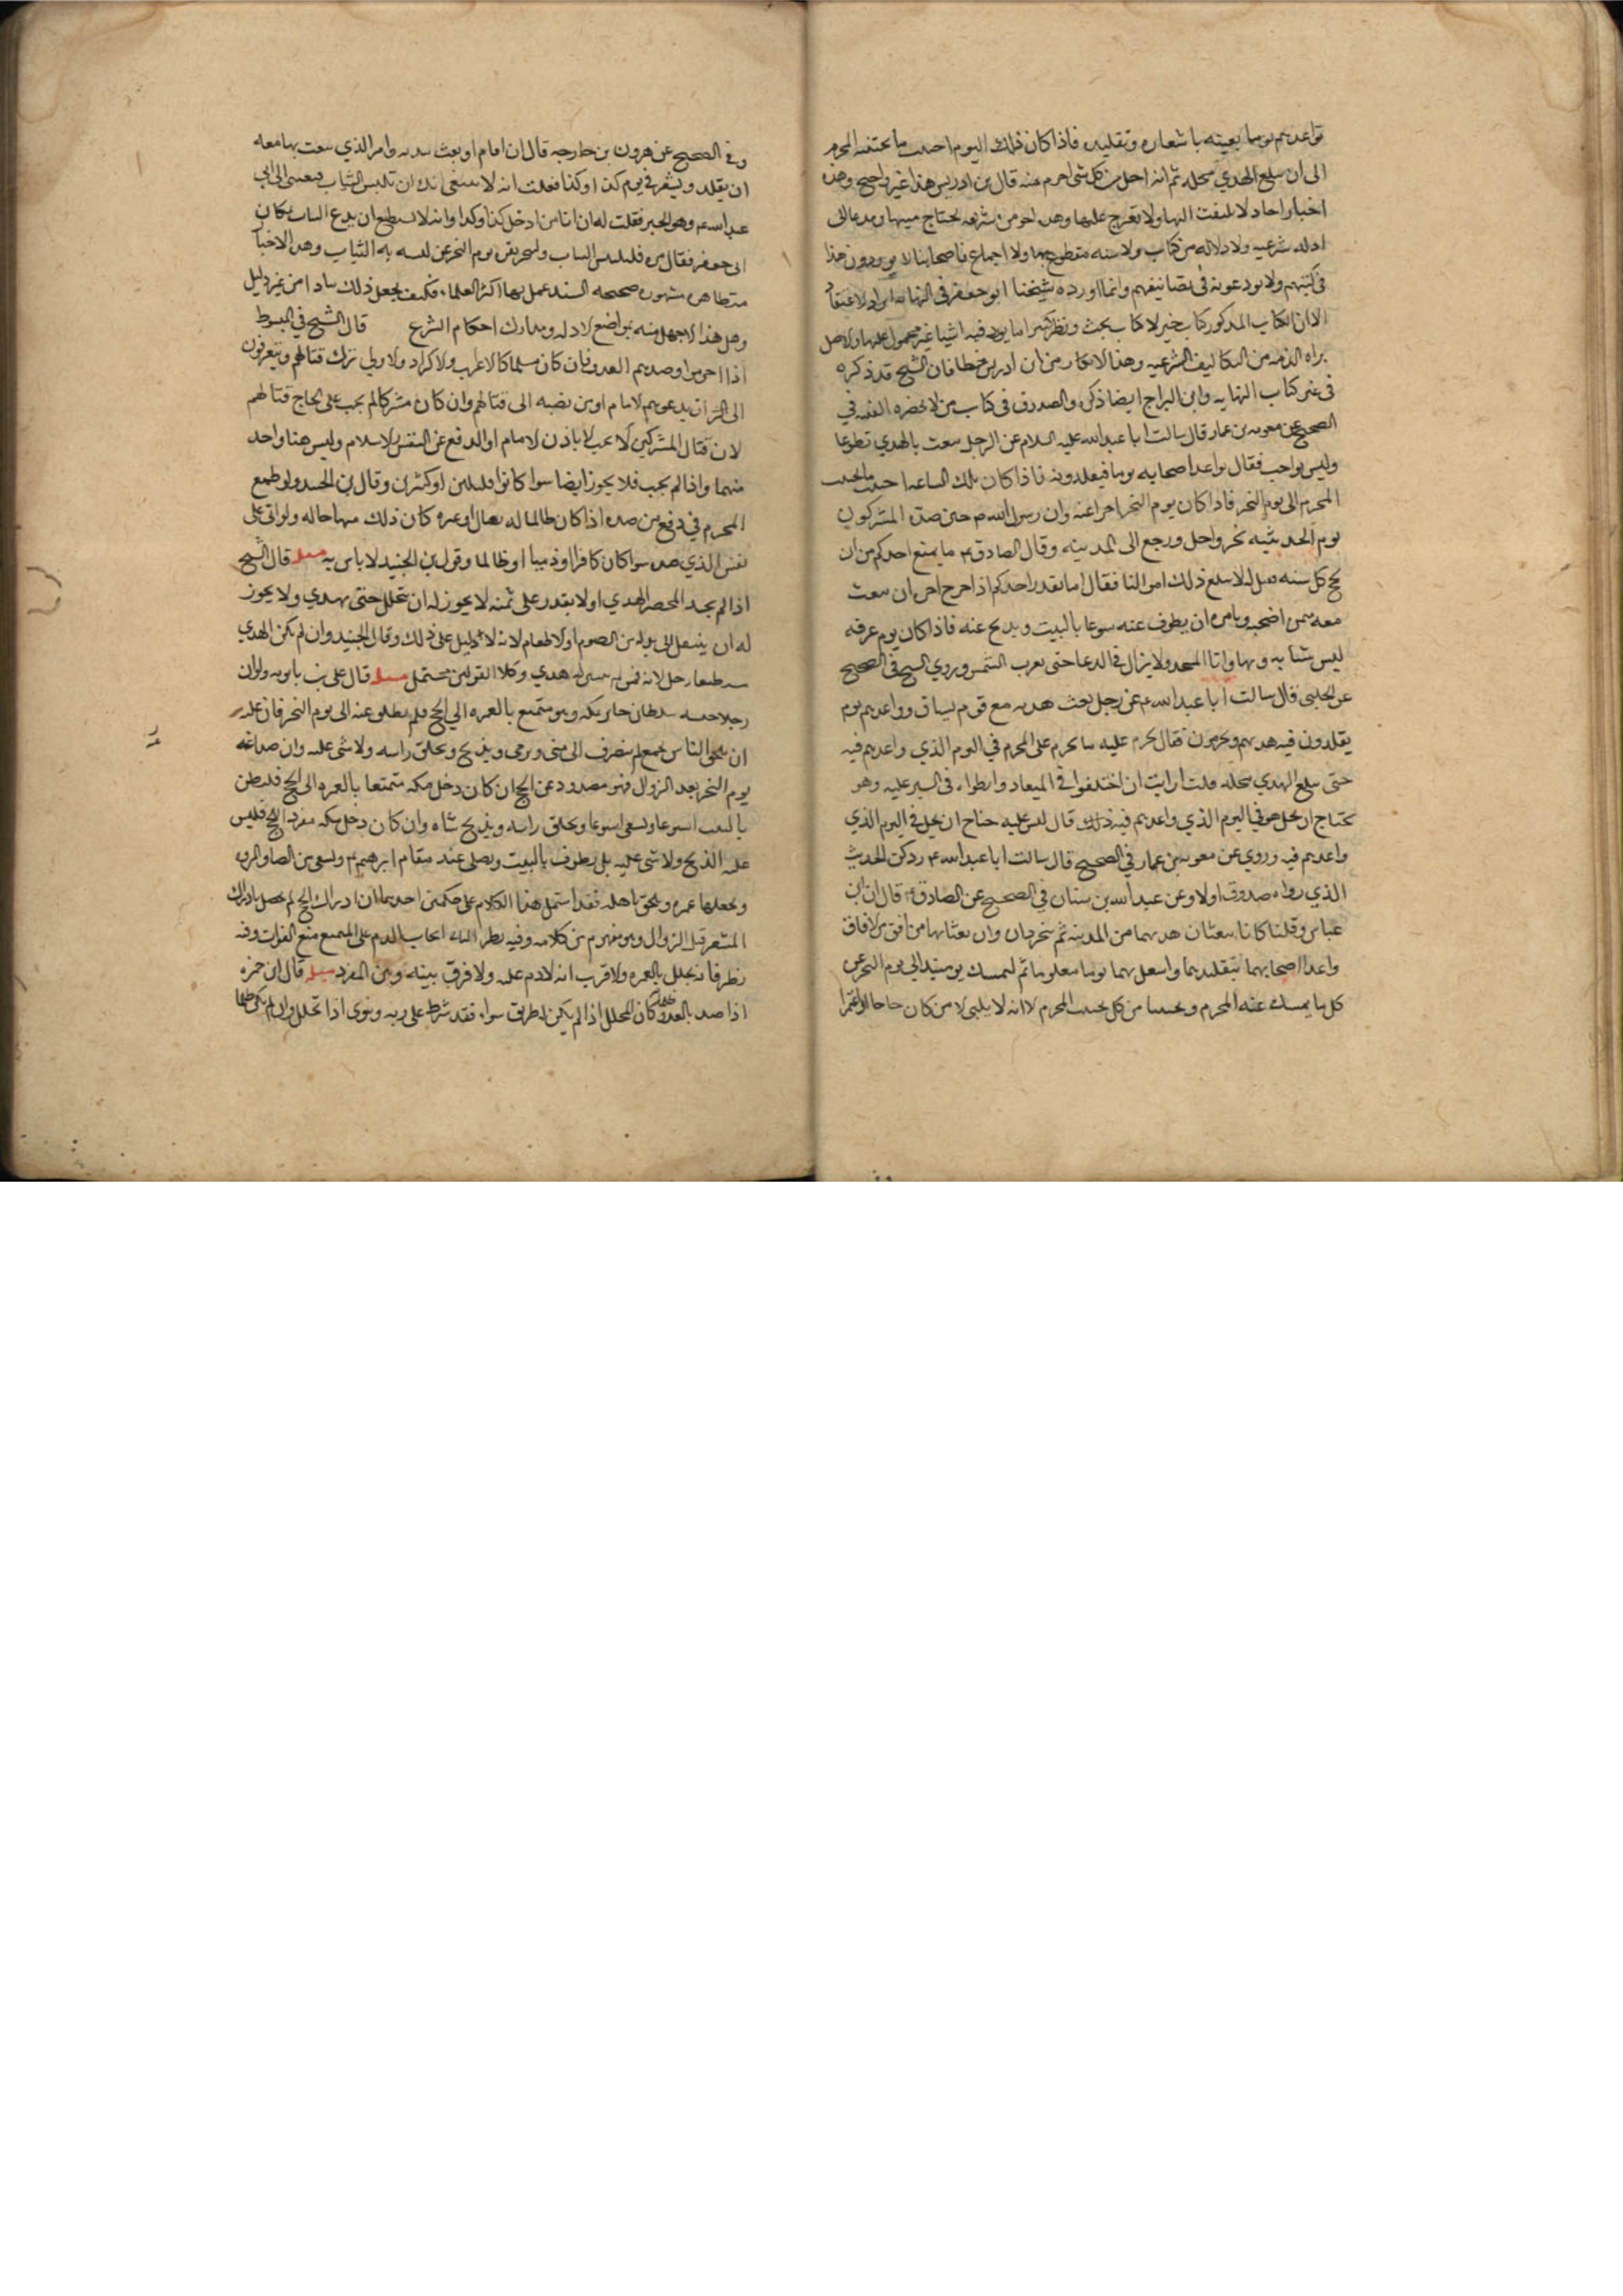 تواعدهم يوما بعينه باشعاره وتقليده فاذا كان ذلك اليوم اجتنب ما يجتنبه المحرم
الى ان يبلغ الهدي محله ثم انه احل من كل شي احرم منه قال بن ادريس هذا غير واضح وهذه
اخبار احاد لا يلتفت اليها ولا يعرج عليها وهذه امور شرعيه يحتاج مثبتها ومدعيها الى
ادله شرعيه ولا دلاله من كتاب ولا سنه مقطوع بها ولا اجماع فاصحابنا لا يوردون هذا
في كتبهم ولا يودعونه في تصانيفهم وانما اورده شيخنا ابو جعفر في النهايه ايرادا لا اعتقادا
لان الكتاب المذكور كتاب خبر لا كتاب بحث ونظر كثيرا ما يورد فيه اشيا غير معمول عليها والاصل
براه الذمه من التكاليف الشرعيه وهذا الانكار من ابن ادريس خطا فان الشيخ قد ذكره
في غير كتاب النهايه وابن البراج ايضا ذكره والصدوق في كتاب من لا يحضره الفقيه في
الصحيح عن معويه بن عمار قال سالت ابا عبد الله عليه السلام عن الرجل يبعث بالهدي تطوعا
وليس بواجب فقال يواعد اصحابه يوما فيقلدونه فاذا كان تلك الساعه اجتنب ما يجتنب
المحرم الى يوم النحر فاذا كان يوم النحر اجزا عنه وان رسول الله ص حين صده المشركون
يوم الحديبيه نحر واحل ورجع الى المدينه وقال الصادق ع ما يمنع احدكم من ان
يحج كل سنه فقيل له لا يبلغ ذلك اموالنا فقال اما يقدر احدكم اذا خرج اخوه ان يبعث
معه بثمن اضحيه ويامره ان يطوف عنه اسبوعا بالبيت ويذبح عنه فاذا كان يوم عرفه
لبس ثيابه وتهيا واتى المسجد ولا يزال في الدعا حتى تغرب الشمس وروي الشيخ في الصحيح
عن الحلبي قال سالت ابا عبد الله ع عن رجل بعث هديه مع قوم يساق وواعدهم يوم
يقلدون فيه هديهم ويحرمون فقال يحرم عليه ما يحرم على المحرم في اليوم الذي واعدهم فيه
حتى يبلغ الهدي محله قلت ارايت ان اختلفوا في الميعاد وابطاوا في السير عليه وهو
يحتاج ان يحل هو في اليوم الذي واعدهم فيه ذلك قال ليس عليه جناح ان يحل في اليوم الذي
واعدهم فيه وروي عن معويه بن عمار في الصحيح قال سالت ابا عبد الله ع وذكر الحديث
الذي رواه صدوق اولا وعن عبد الله بن سنان في الصحيح عن الصادق ع قال ان ابن
عباس وقلنا كانا يبعثان هديهما من المدينه ثم يتجردان وان بعثا بهما من افق من الافاق
واعدا اصحابهما بتقليدهما واشعارهما يوما معلوما ثم ليمسك يوميذ الى يوم النحر عن
كل ما يمسك عنه المحرم ويجتنبا من كل يجتنب المحرم الا انه لا يلبي الا من كان حاجا او معتمرا
وفي الصحيح عن هرون بن خارجه قال ان ابا مراد بعث ببدنه وامر الذي بعث بها معه
ان يقلد ويشعر في يوم كذا وكذا فقلت انه لا ينبغي لك ان تلبس الثياب فبعثني الى ابي
عبد الله ع وهو بالحيره فقلت له ان ابا مراد فعل كذا وكذا وانه لا يستطيع ان يدع الثياب لمكان
ابي جعفر فقال مره فليلبس الثياب ولينحر بقره يوم النحر عن لبسه به الثياب وهذه الاخبار
متظاهره مشهوره صحيحه السند عمل بها اكثر العلماء فكيف يجعل ذلك شاذا من غير دليل
وهل هذا الا جهل منه بمواضع الادله ومدارك احكام الشرع قال الشيخ في المبسوط
اذا احرموا وصدهم العدو فان كان مسلما كالاعراب والاكراد والاولى ترك قتالهم وينصرفون
الى الا ان يدعوهم الامام او من نصبه الى قتالهم وان كان مشركا لم يجب على الحاج قتالهم
لان قتال المشركين لا يجب الا باذن الامام او الدفع عن النفس والاسلام وليس هنا واحد
منهما واذا لم يجب فلا يجوز ايضا سوا كانوا قليلين او كثيرين وقال بن الجنيد ولو طمع
المحرم في دفع من صده اذا كان ظالما له بقتال او غيره كان ذلك مباحا له ولو اتى على
نفس الذي صده سوا كان كافرا او ذميا او ظالما وقول بن الجنيد لا باس به مسله قال الشيخ
اذا لم يجد المحصر الهدي او لا يقدر على ثمنه لا يجوز له ان يتحلل حتى يهدي ولا يجوز
له ان ينتقل الى بدله من الصوم او الاطعام لانه لا دليل على ذلك وقال الجنيد وان لم يكن الهدي
احل لانه ممن لم يتيسر له هدي وكلا القولين محتمل مسله قال علي بن بابويه ولو ان
رجلا حبسه سلطان جاير بمكه وهو متمتع بالعمره الى الحج فلم يطلق عنه الى يوم النحر فان عليه
ان يلحق الناس بجمع ثم ينصرف الى منى ويرمي ويذبح ويحلق راسه ولا شي عليه وان خلي عنه
يوم النحر بعد الزوال فهو مصدود عن الحج ان كان دخل مكه متمتعا بالعمره الى الحج فليطف
بالبيت اسبوعا ويسعى اسبوعا ويحلق راسه ويذبح شاه وان كان دخل مكه مفردا للحج فليس
عليه الذبح ولا شي عليه بل يطوف بالبيت ويصلي عند مقام ابرهيم ع ويسعى بين الصفا والمروه
ويجعلها عمره ويلحق باهله فقد اشتمل هذا الكلام على حكمين احدهما ان ادراك الحج لم يحصل بادراك
المشعر قبل الزوال وهو مفهوم من كلامه وفيه نظر الثاني ايجاب الدم على المتمتع مع الفوات وفيه
نظر فانه يتحلل بالعمره والاقرب انه لا دم عليه ولا فرق بينه وبين المفرد مسله قال ابن حمزه
اذا صد بالعدو كان التحلل اذا لم يكن له طريق سواه فقد شرط على ربه ونوى اذا تحلل وان لم يكن